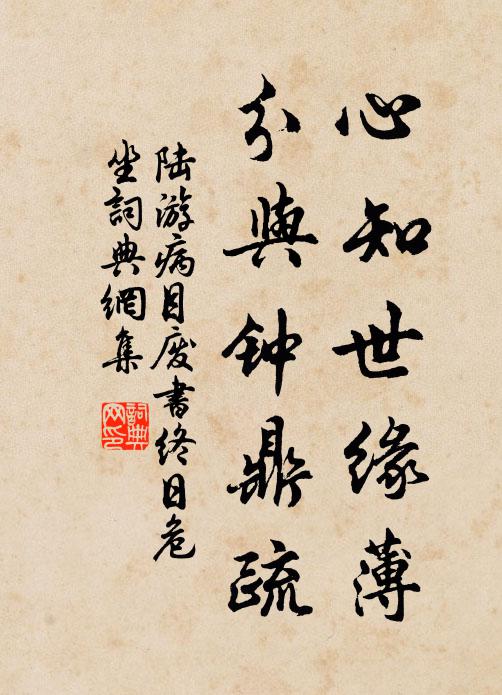 心知世緣薄
分與钟鼎疏
陆游病目废書终日危
坐詞典網集
詞典
网印